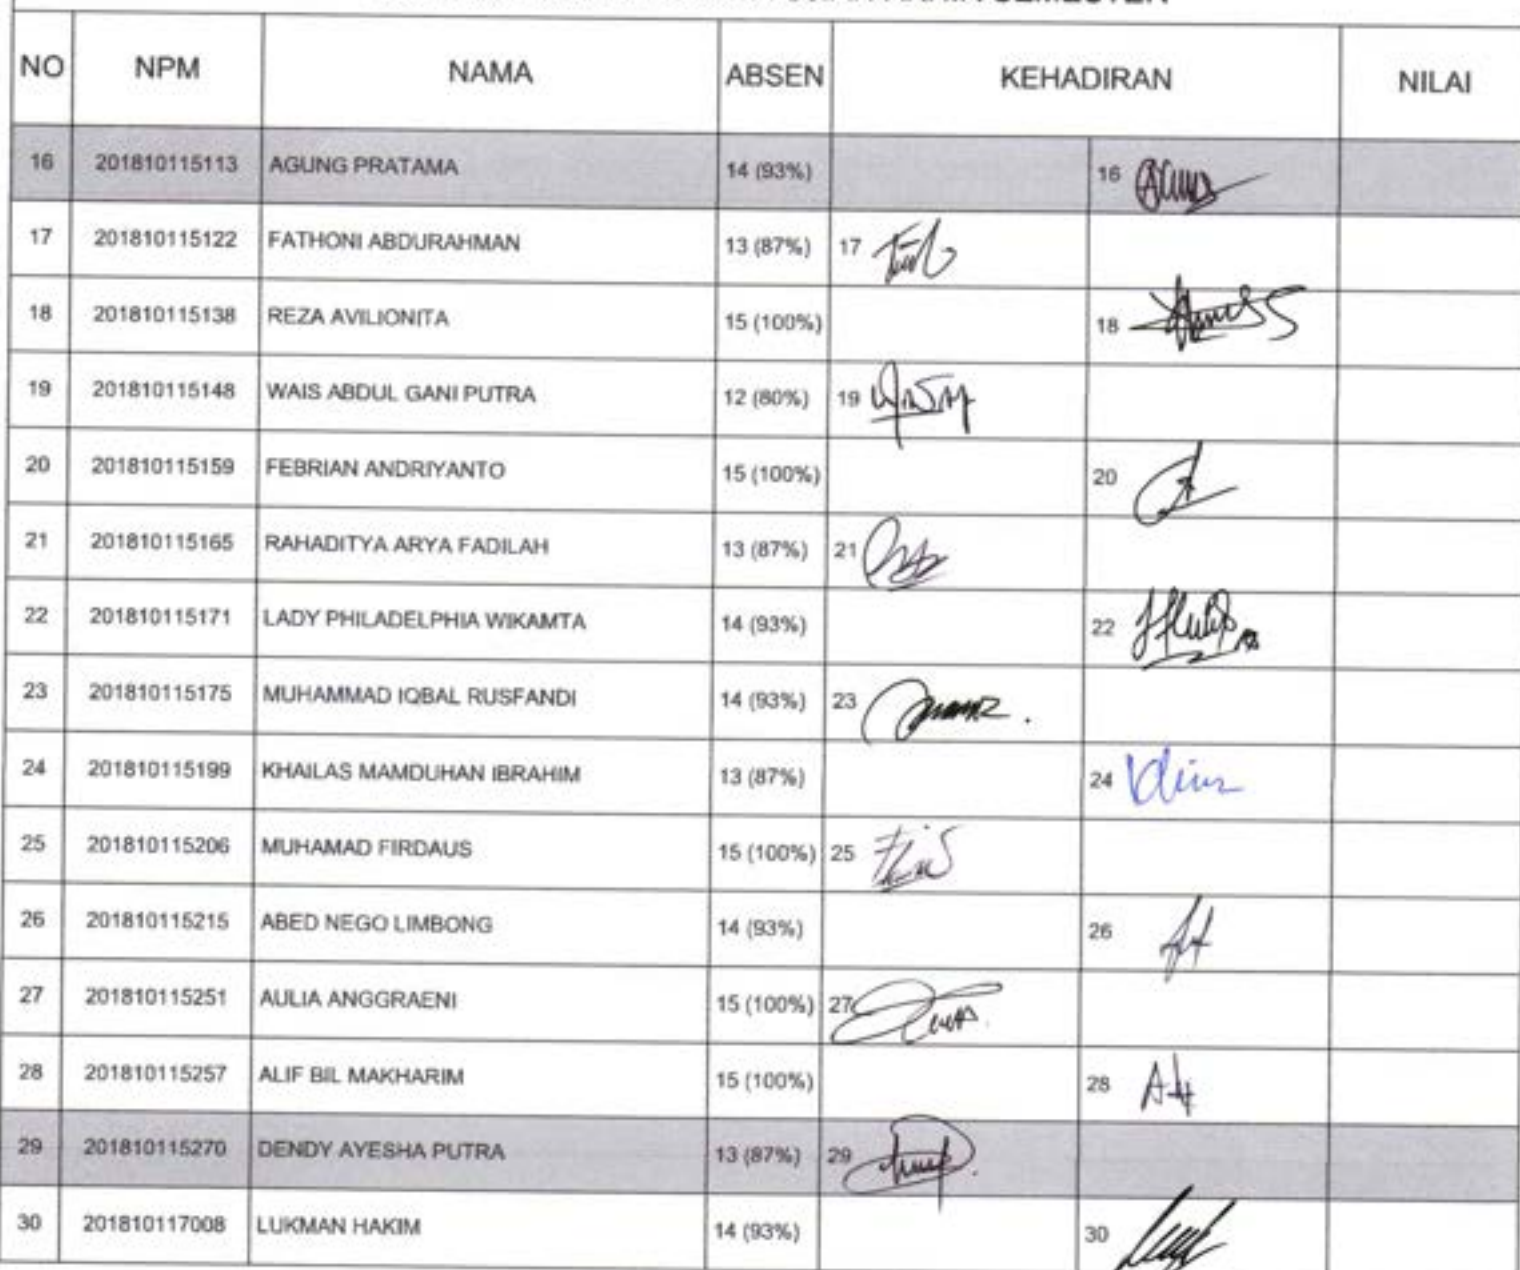 NO NPM NAMA ABSEN KEHADIRAN NILAI
16 201810115113 AGUNG PRATAMA 14 (93%) 16
17 201810115122 FATHONI ABDURAHMAN 13 (87%) 17
18 201810115138 REZA AVILIONITA 15 (100%) 18
19 201810115148 WAIS ABDUL GANI PUTRA 12 (80%) 19
20 201810115159 FEBRIAN ANDRIYANTO 15 (100%) 20
21 201810115165 RAHADITYA ARYA FADILAH 13 (87%) 21
22 201810115171 LADY PHILADELPHIA WIKAMTA 14 (93%) 22
23 201810115175 MUHAMMAD IQBAL RUSFANDI 14 (93%) 23
24 201810115199 KHAILAS MAMDUHAN IBRAHIM 13 (87%) 24
25 201810115206 MUHAMAD FIRDAUS 15 (100%) 25
26 201810115215 ABED NEGO LIMBONG 14 (93%) 26
27 201810115251 AULIA ANGGRAENI 15 (100%) 27
28 201810115257 ALIF BIL MAKHARIM 15 (100%) 28
29 201810115270 DENDY AYESHA PUTRA 13 (87%) 29
30 201810117008 LUKMAN HAKIM 14 (93%) 30